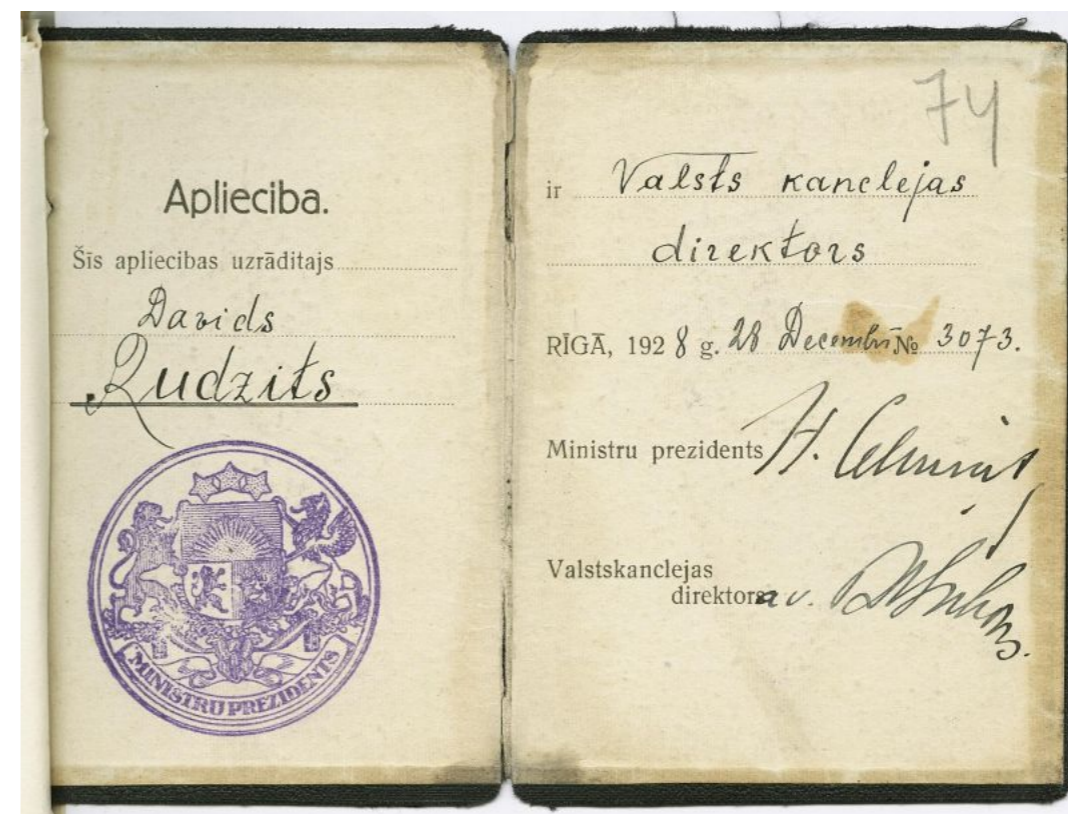 Apliecība.
Šīs apliecibas uzrāditajs
Davids
Rudzits
MINISTRU PREZIDENTS
74
ir Valsts kanclejas
direktors
RĪGĀ, 1928 g. 28 Decembrī № 3073.
Ministru prezidents H. Celmiņš
Valstskanclejas
direktora v.